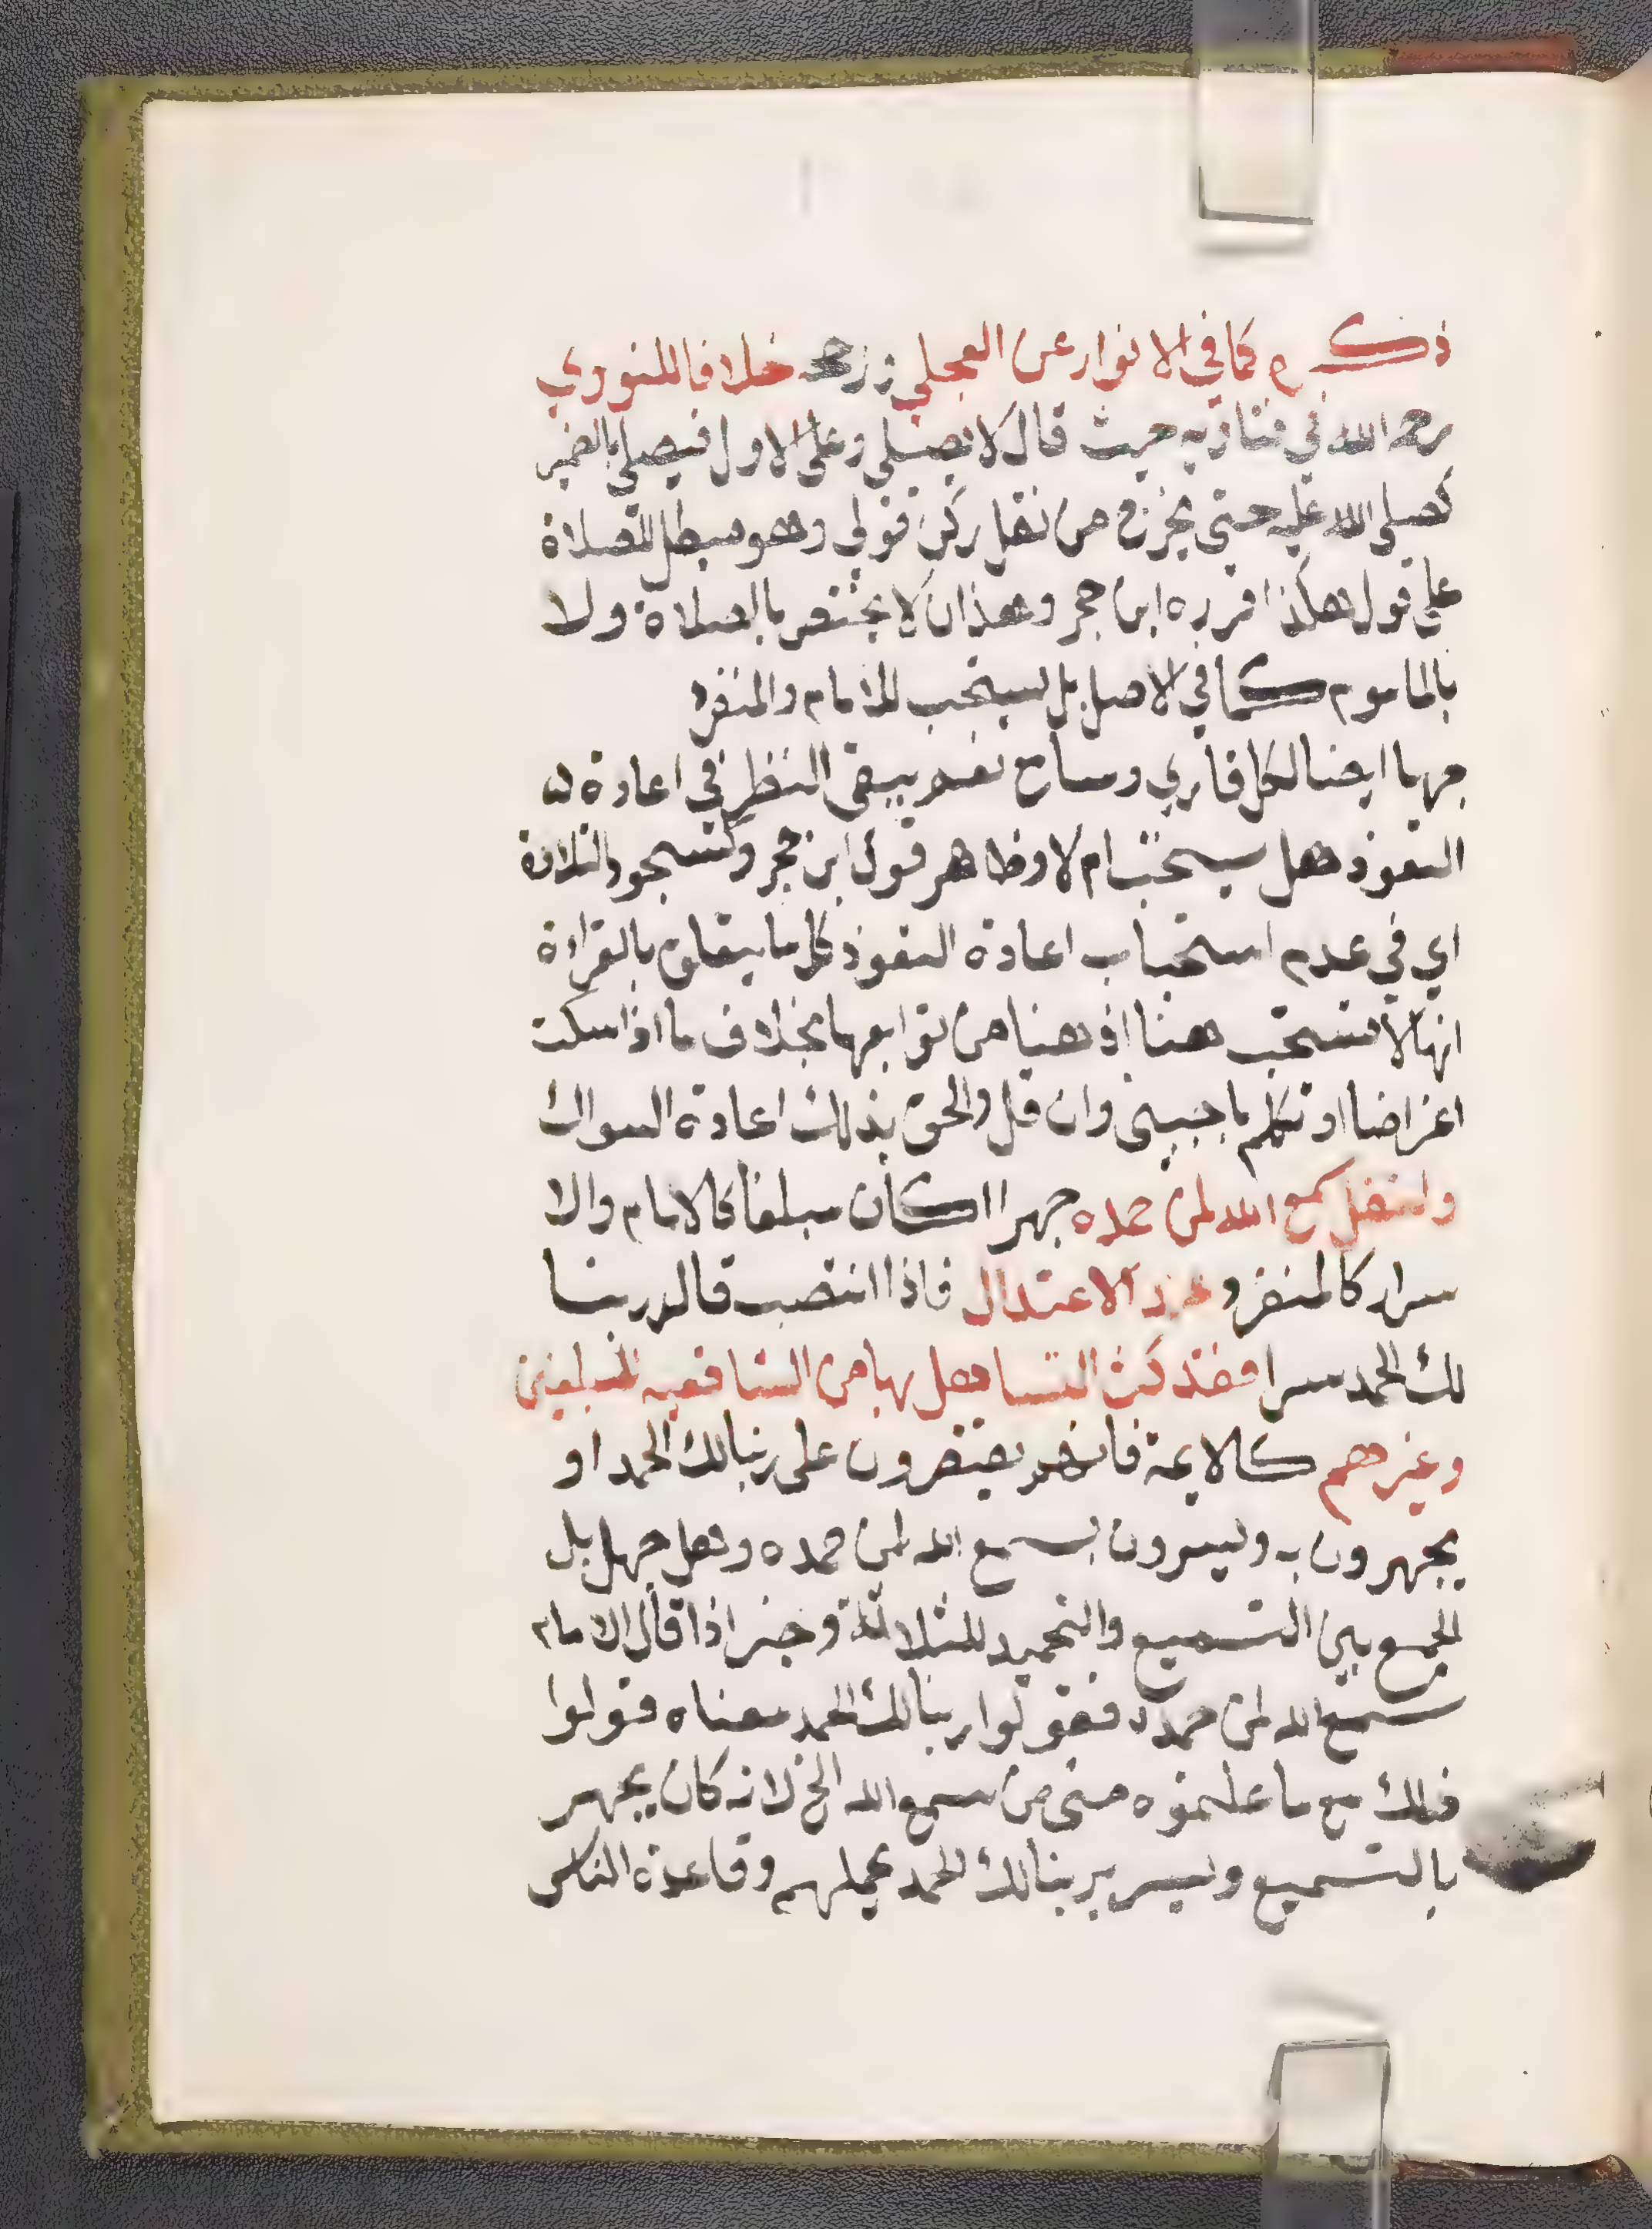 ذكره كما في الانوار عن العجلي ورجح خلافا للنووي
رحمه الله في فتاويه حيث قال لا يصلي وعلى الاول فيصلي بالضمير
كصلى الله عليه حتى يخرج من نقل ركن قولي وهو مبطل للصلاة
على قول هكذا قرره ابن حجر وهذان لا يختص بالصلاة ولا
بالماموم كما في الاصل بل يستحب للامام والمنفرد
جهرا ايضا لكل قاري وسامع نعم يبقى النظر في اعادة
التعوذ هل يستحب ام لا وظاهر قول ابن حجر وكسجود التلاوة
اي في عدم استحباب اعادة التعوذ كل ما يتعلق بالقراءة
انها لا تستحب هنا اذ هنا من توابعها بخلاف ما اذا سكت
اعراضا او تكلم باجنبي وان قل والحق بذلك اعادة السواك
سمع الله لمن حمده جهرا ان كان مبلغا كالامام والا
سرا كالمنفرد عند الاعتدال فاذا انتصب قال ربنا
لك الحمد سرا فقد كثر التساهل بها من الشافعيه المبلغين
وغيرهم كالايمة فانهم يقتصرون على ربنا لك الحمد او
يجهرون به ويسرون بسمع الله لمن حمده وهل جهل بل
الجمع بين التسميع والتحميد للثلاثة وخبر اذا قال الامام
سمع الله لمن حمده فقولوا ربنا لك الحمد معناه قولوا
ذلك مع ما علمتموه مني من سمع الله الخ لانه كان يجهر
بالتسميع ويسر بربنا لك الحمد وقاعدة الناس